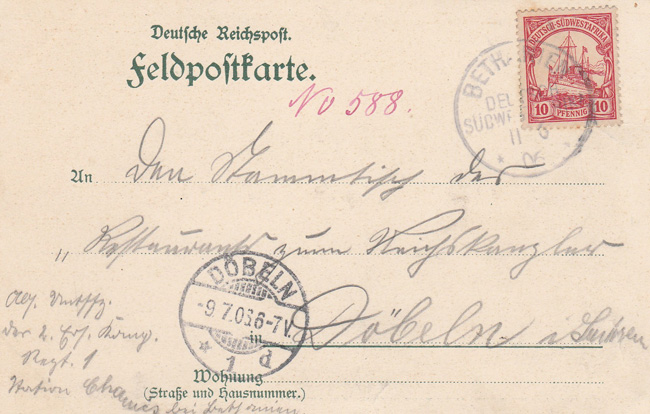 Deutsche Reichspost.
Feldpostkarte.
No 588.
DEUTSCH-SÜDWESTAFRIKA
10 PFENNIG 10
BETH
DEU
SÜDWE
11 6
06
An Den Stammtisch des
„ Restaurants zum Reichskanzler
DÖBELN
-9.7.06.6-7V.
1 d
in Döbeln i. Sachsen
Wohnung
(Straße und Hausnummer.)
der 2. Ers. Komp.
Regt. 1
Station
bei Bethanien